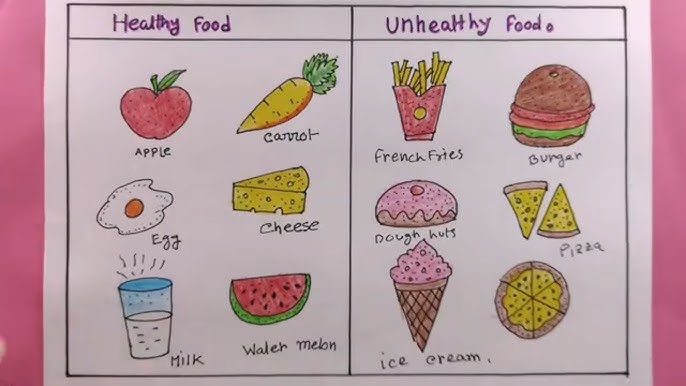 Healthy Food
Unhealthy Food.
APPLE
Carrot
French Fries
Burger
Egg
Cheese
Dough nuts
Pizza
Milk
Water melon
ice cream.